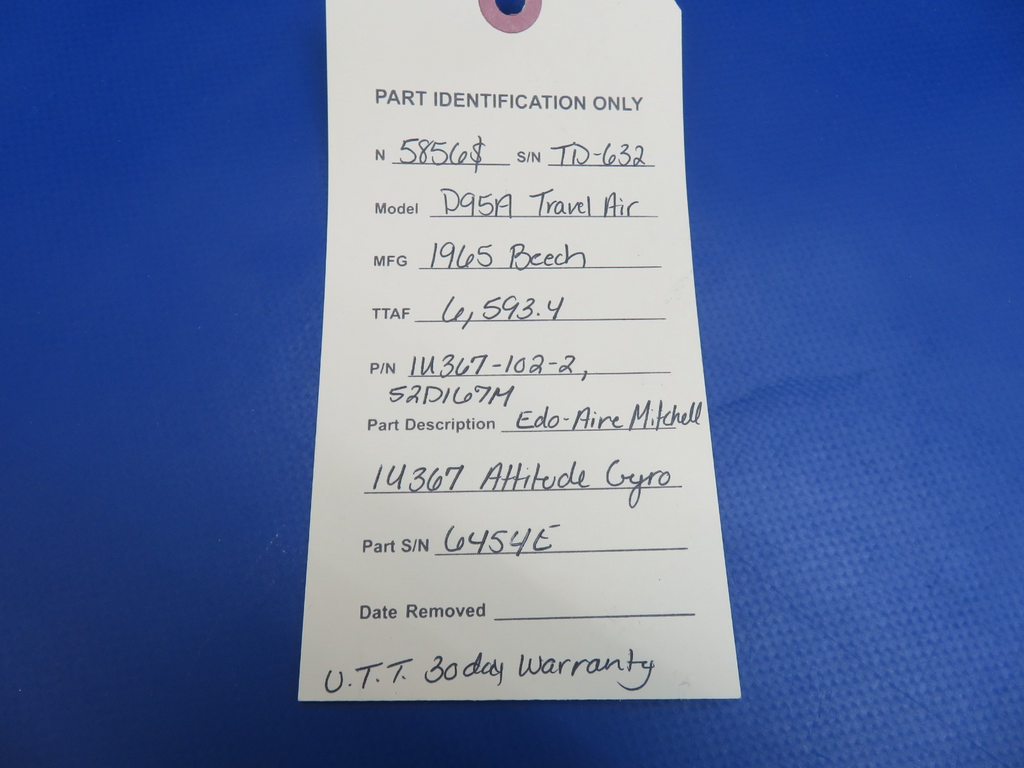 PART IDENTIFICATION ONLY
N 5856$ S/N TD-632
Model D95A Travel Air
MFG 1965 Beech
TTAF 6,593.4
P/N 1U367-102-2,
52D167M
Part Description Edo-Aire Mitchell
1U367 Attitude Gyro
Part S/N 6454E
Date Removed
U.T.T. 30 day Warranty